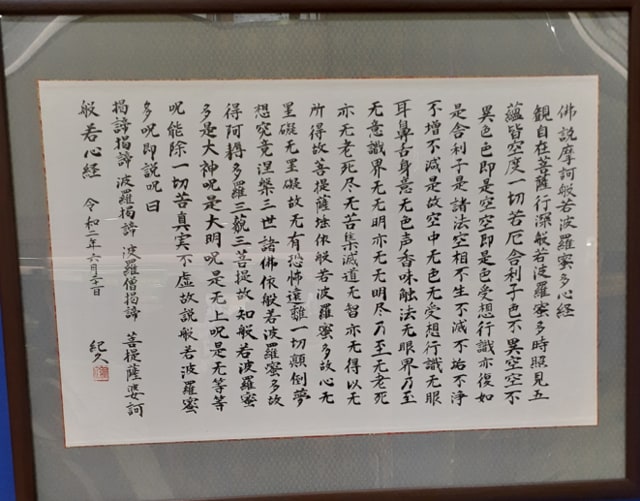 佛説摩訶般若波羅蜜多心経
観自在菩薩行深般若波羅蜜多時照見五
蘊皆空度一切苦厄舎利子色不異空空不
異色色即是空空即是色受想行識亦復如
是舎利子是諸法空相不生不滅不垢不浄
不增不減是故空中无色无受想行識无眼
耳鼻舌身意无色声香味触法无眼界乃至
无意識界无无明亦无无明尽乃至无老死
亦无老死尽无苦集滅道无智亦无得以无
所得故菩提薩埵依般若波羅蜜多故心无
罣礙无罣礙故无有恐怖遠離一切顛倒夢
想究竟涅槃三世諸佛依般若波羅蜜多故
得阿耨多羅三藐三菩提故知般若波羅蜜
多是大神呪是大明呪是无上呪是无等等
呪能除一切苦真実不虚故説般若波羅蜜
多呪即説呪曰
揭諦揭諦 波羅揭諦 波羅僧揭諦 菩提薩婆訶
般若心経 令和二年六月 紀久